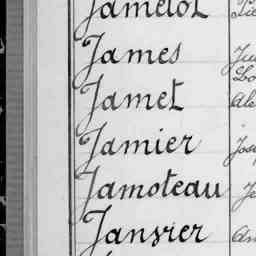 Jamelot
James
Jamet
Jamier
Jamoteau
Janvier